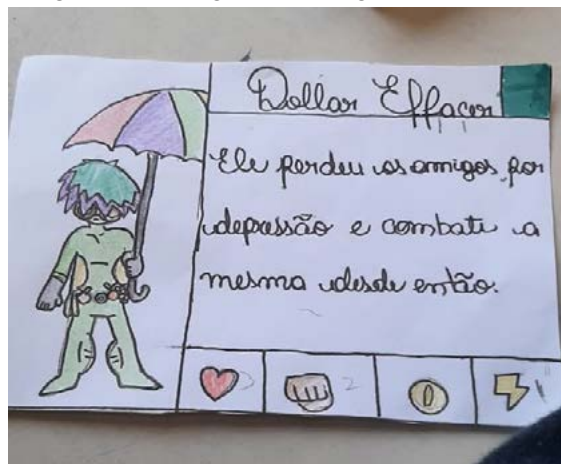 Dollar Effacer
Ele perdeu os amigos por
depressão e combate a
mesma desde então.